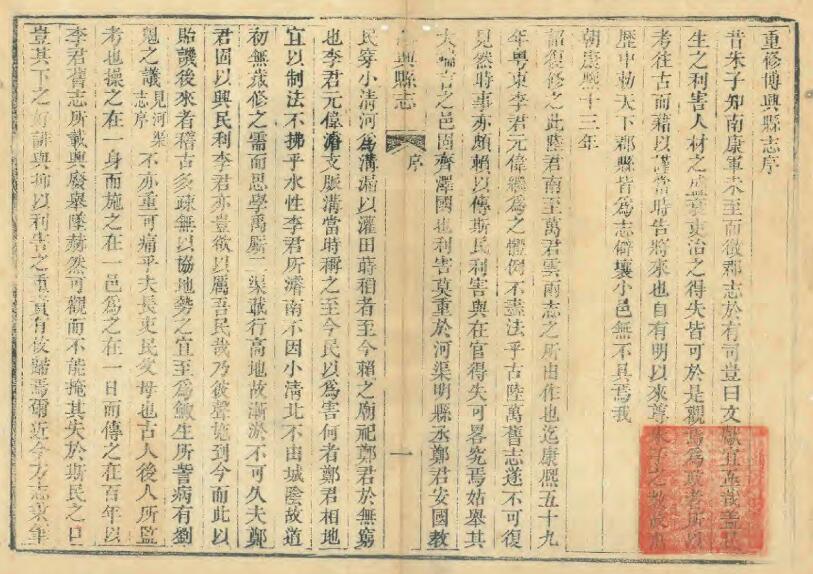 重修博興縣志序
昔朱子知南康軍未至而徵郡志於有司豈曰文獻宜爾哉蓋民
生之利害人材之盛衰吏治之得失皆可於是觀焉為政者所以
考往古而藉以謹當時告將來也自有明以來尊朱子之教故
歷中勅天下郡縣皆為志僻壤小邑無不具焉我
朝康熙十三年
詔復修之此陸君南至萬君雲雨志之所由作也迄康熙五十九
年粵東李君元偉繼為之體例不盡法乎古陸萬舊志遂不可復
見然時事亦頗賴以傳斯民利害與在官得失可畧究焉姑舉其
大端言之邑固齊澤國也利害莫重於河渠明縣丞鄭君安國教
博興縣志
序
一
民穿小清河為溝洫以灌田蒔稻者至今賴之廟祀鄭君於無窮
也李君元偉濬支脈溝當時稱之至今民以為害何者鄭君相地
宜以制法不拂乎水性李君所濬南不因小清北不由城陰故道
初無歲修之需而思學禹廝二渠載行高地故漸淤不可久夫鄭
君固以興民利李君亦豈欲以厲吾民哉乃彼聲施到今而此以
貽譏後來者稽古多疎無以協地勢之宜至為斂生所訾病有劉
鬼之議見河渠志序不亦重可痛乎夫長吏民父母也古人後人所監
考也操之在一身而施之在一邑為之在一日而傳之在百年以
李君舊志所載興廢舉墜赫然可觀而不能掩其失於斯民之口
豈其下之好誹與抑以利害之實實有攸歸焉爾近今方志業年